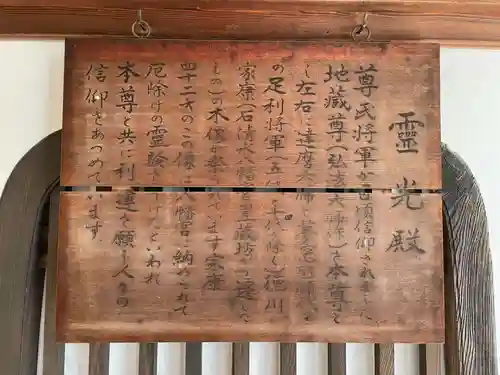 靈光殿
尊氏将軍が日頃信仰されました
地蔵尊(弘法大師作)を本尊と
し左右に達磨大師と夢窓国師
の足利将軍(五代と十代を除く)徳川
家康(石清水八幡宮豊蔵坊に建立
の木像が祭られています家康
四十二才のこの像は八幡宮に納められて
厄除けの霊験を上げたといわれ
本尊と共に利運を願う人々の
信仰をあつめています